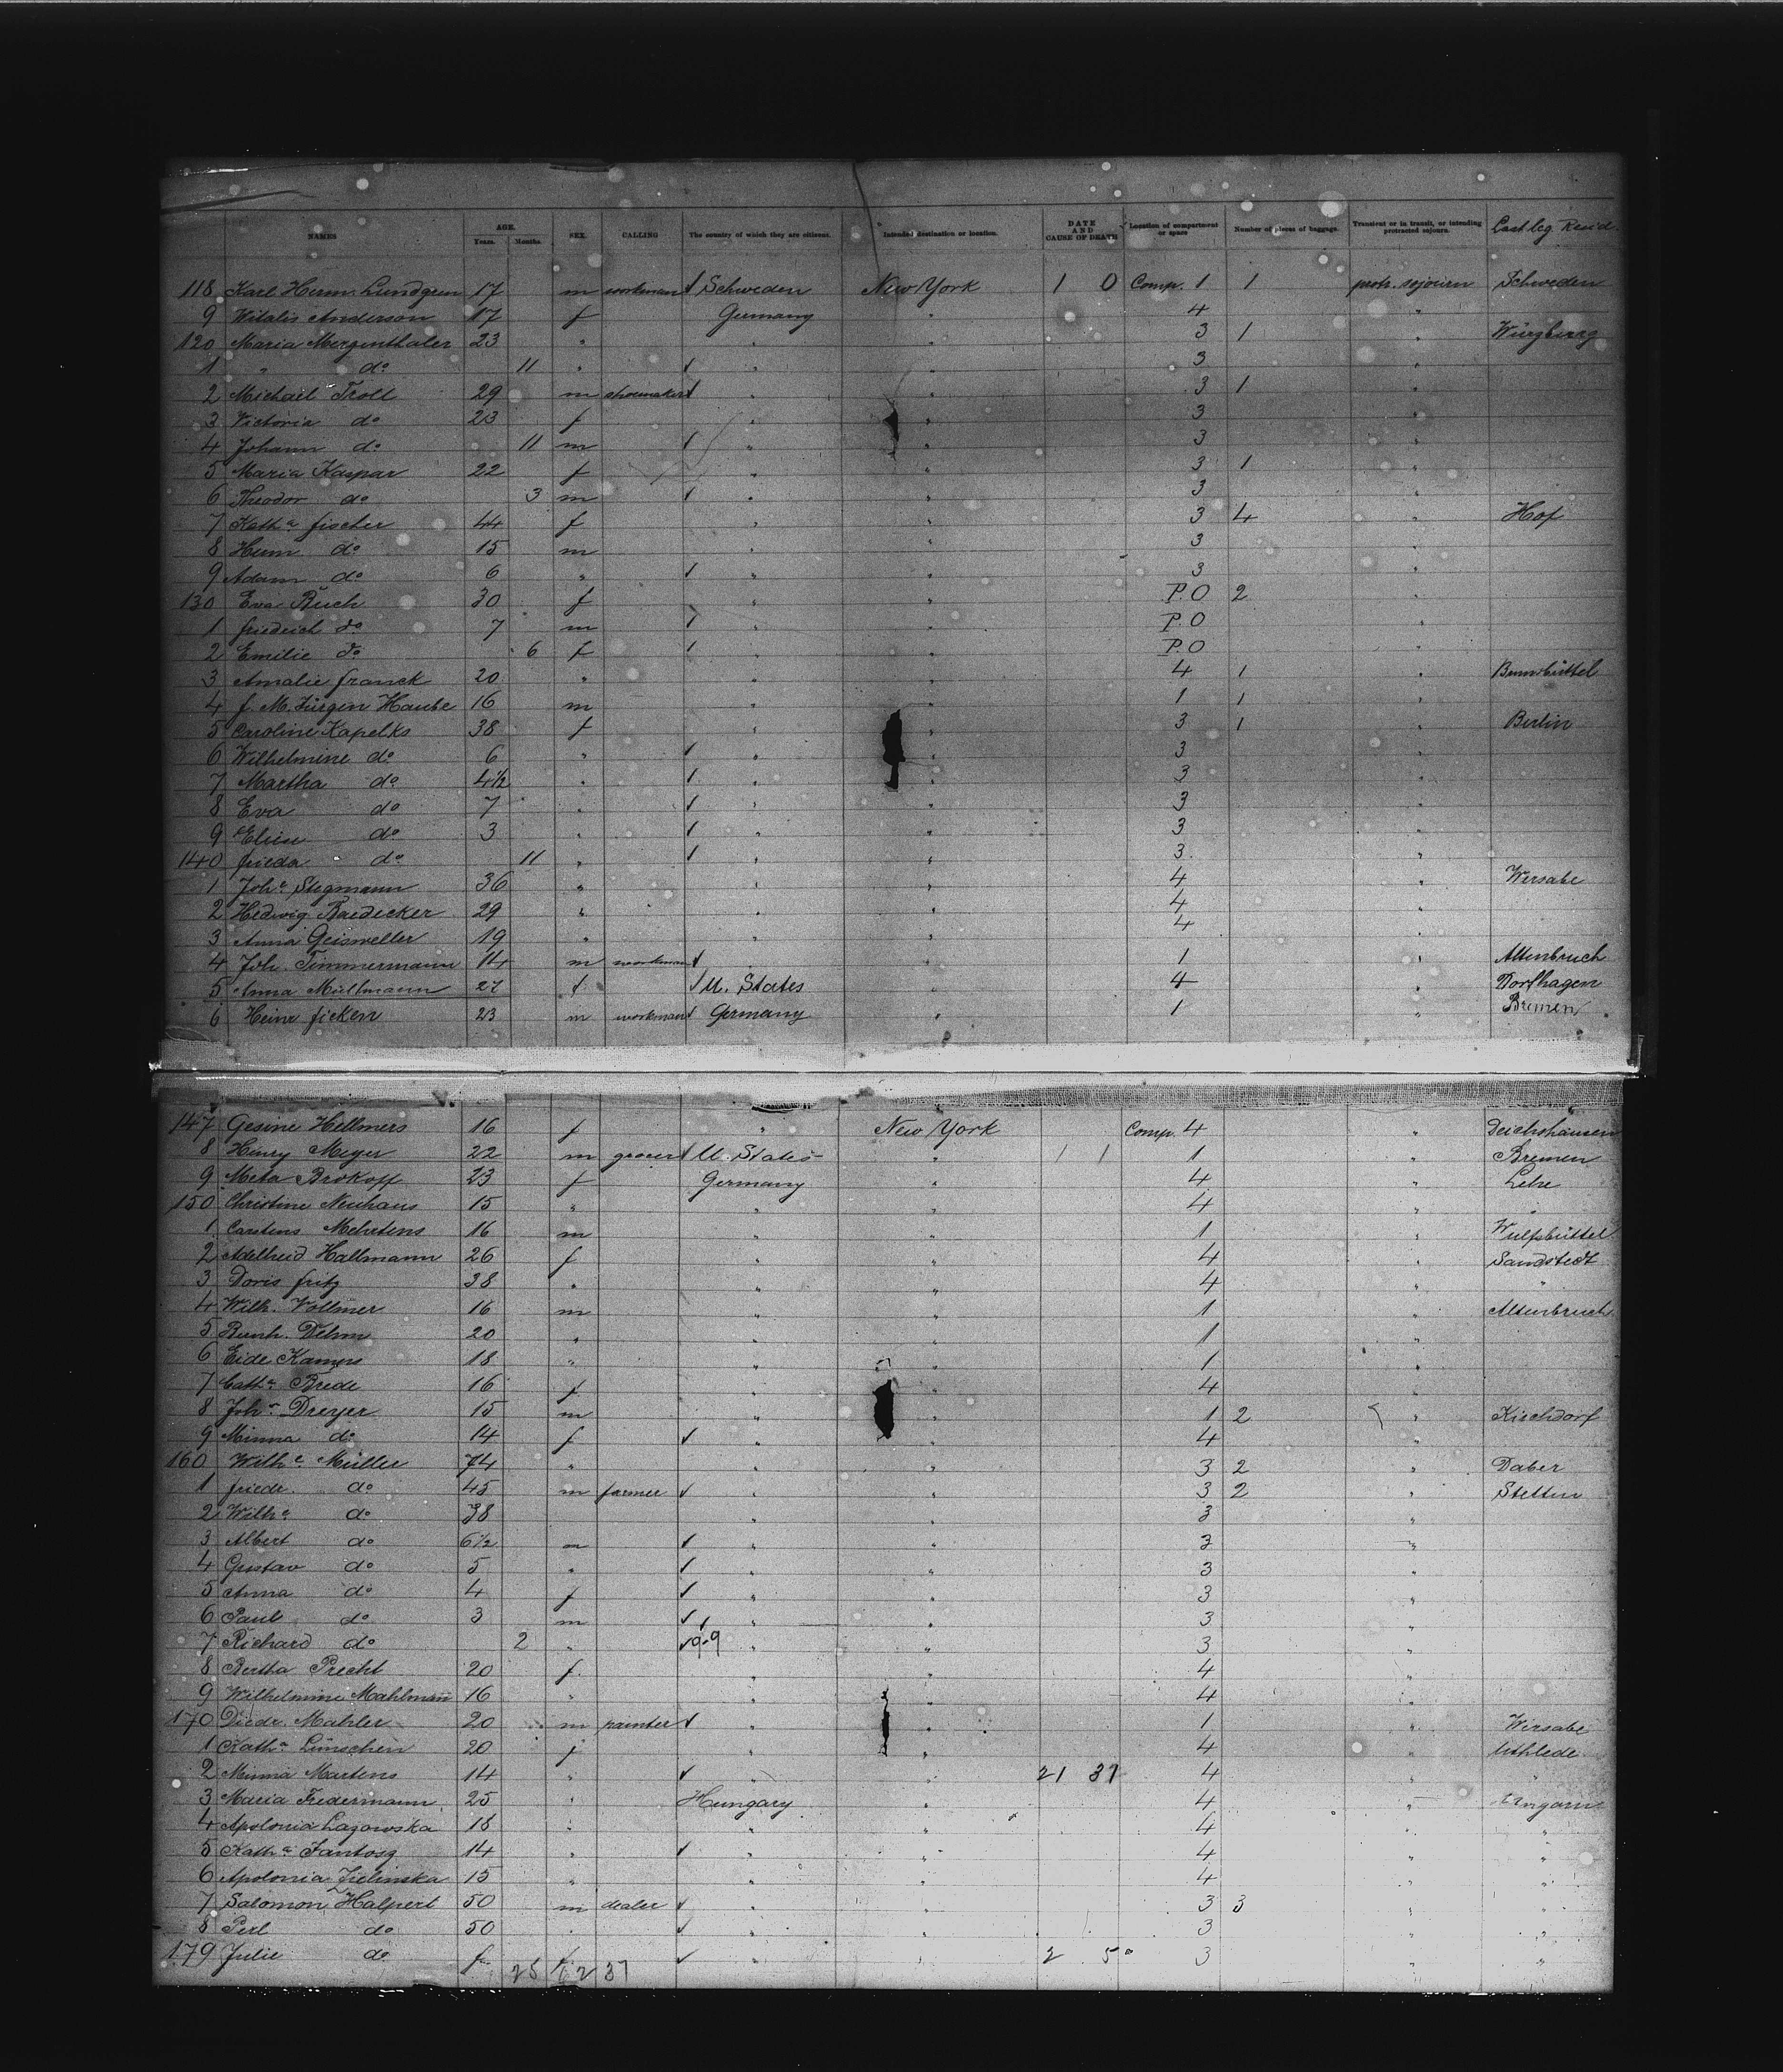 NAMES AGE. Years. Months. SEX. CALLING The country of which they are citizens. Intended destination or location. DATE AND CAUSE OF DEATH Location of compartment or space Number of pieces of baggage. Transient or in transit, or intending protracted sojourn. Last leg. Resid.
118 Karl Herm. Lundgren 17 m workman ✓ Schweden New York 1 0 Comp. 1 1 protr. sojourn Schweden
9 Witalis Anderson 17 f Germany " 4 "
120 Maria Mergenthaler 23 " " " 3 1 "
1 " do 11 " ✓ " " 3 "
2 Michail Troll 29 m shoemaker ✓ " " 3 1 "
3 Victoria do 23 f " " 3 "
4 Johann do 11 m ✓ " " 3 "
5 Maria Kaspar 22 f " " 3 1 "
6 Theodor do 3 m ✓ " " 3 "
7 Kath.a Fischer 44 f " " 3 4 " Hof
8 Herm do 15 m " " 3 "
9 Adam do 6 " ✓ " " 3 "
130 Eva Ruch 30 f " " P.O 2 "
1 Friedrich do 7 m ✓ " " P.O "
2 Emilie do 6 f ✓ " " P.O "
3 Amalie Franck 20 " " " 4 1 "
4 F. M. Jürgen Haube 16 m " " 1 1 "
5 Caroline Kapelks 38 f " " 3 1 " Berlin
6 Wilhelmine do 6 " ✓ " " 3 "
7 Martha do 4½ " ✓ " " 3 "
8 Eva do 7 " ✓ " " 3 "
9 Elise do 3 " ✓ " " 3 "
140 Frieda do 11 " ✓ " " 3 "
1 Joh.e Stegmann 36 " " " 4 " Wersabe
2 Hedwig Baedecker 29 " " " 4 "
3 Anna 19 " " " 4 "
4 Joh. Timmermann 14 m workman ✓ " 1 " Altenbruch
5 Anna Müllmann 27 f ✓ U. States " 4 " Dorfhagen
6 Heinr Ficken 23 m workman ✓ Germany " 1 " Bremen
147 Gesine Hellmers 16 f " New York Comp. 4 " Deichshausen
8 Henry Meyer 22 m grocer ✓ U. States " 1 1 1 " Bremen
9 Meta Brokoff 23 f Germany " 4 " Lehe
150 Christine Neuhaus 15 " " " 4 " "
1 Carstens Mehrtens 16 m " " 1 " Wulfsbüttel
2 Adelheid Hallmann 26 f " " 4 " Sandstedt
3 Doris Fritz 38 " " " 4 " "
4 Wilh. Vollmer 16 m " " 1 " Altenbruch
5 Bernh. Dehm 20 " " " 1 "
6 Eide Kamps 18 " " " 1 "
7 Cath.a Brede 16 f " " 4 "
8 Joh.n Dreyer 15 m " " 1 2 " Kirchdorf
9 Minna do 14 f ✓ " 4 "
160 Wilh.e Müller 74 " " " 3 2 " Daber
1 Friedr. do 45 m farmer ✓ " " 3 2 " Stettin
2 Wilh.e do 38 " " 3 "
3 Albert do 6½ m ✓ " " 3 "
4 Gustav do 5 " ✓ " " 3 "
5 Anna do 4 f ✓ " " 3 "
6 Paul do 3 m ✓ " " 3 "
7 Richard do 2 " ✓ 9-9 " " 3 "
8 Bertha Precht 20 f " " 4 "
9 Wilhelmine Mahlmann 16 " " " 4 "
170 Diedr. Mahler 20 m painter ✓ " " 1 " Wersabe
1 Kath.a Lünschen 20 f " " 4 " Uthlede
2 Minna Martens 14 " ✓ " 21 37 4 " "
3 Maria Federmann 25 " Hungary " 4 " Ungarn
4 Apolonia Lazowska 18 " " " 4 " "
5 Kath.a Jantosg 14 " ✓ " " 4 " "
6 Apolonia Zielinska 15 " " " 4 " "
7 Salomon Halpert 50 m dealer ✓ " " 3 3 " "
8 Perl do 50 " ✓ " " 3 " "
179 Julie do f ✓ " " 2 5 3 " "
25 12 37